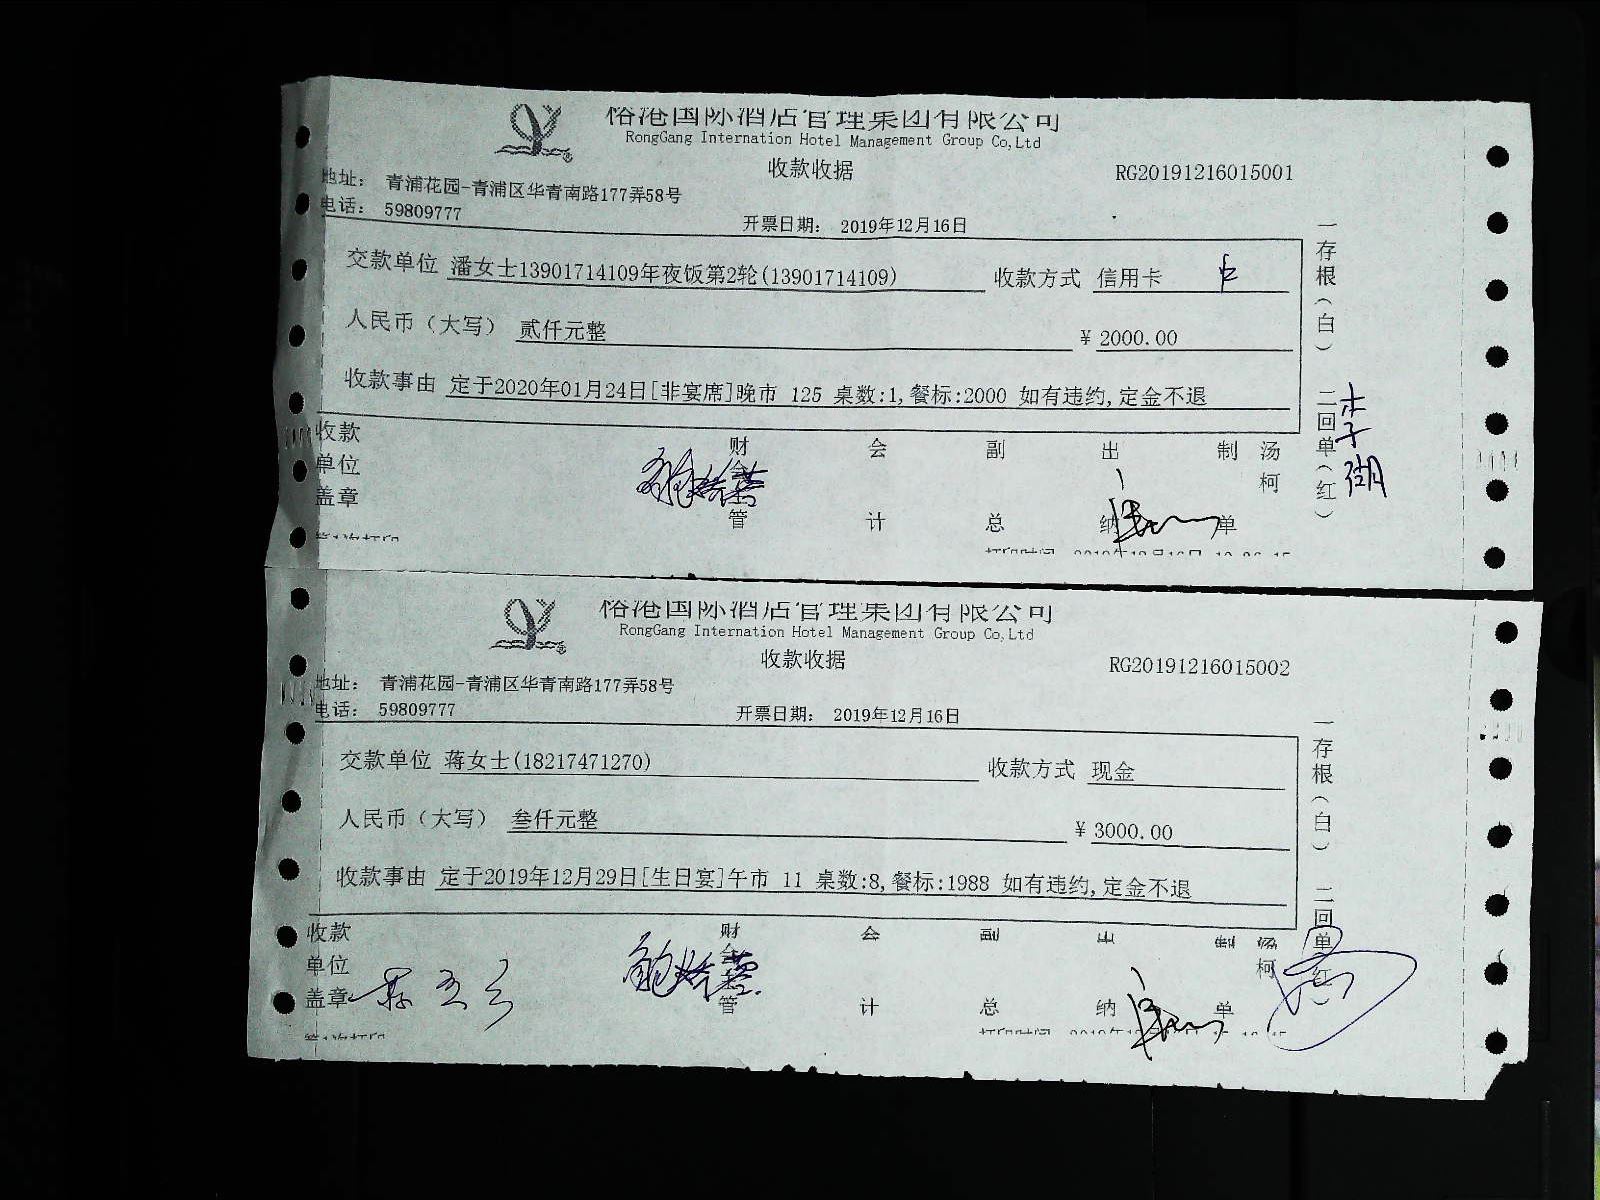 榕港国际酒店管理集团有限公司
RongGang Internation Hotel Management Group Co,Ltd
收款收据 RG20191216015001
地址: 青浦花园-青浦区华青南路177弄58号
电话: 59809777 开票日期: 2019年12月16日
交款单位 潘女士13901714109年夜饭第2轮(13901714109) 收款方式 信用卡
人民币（大写） 贰仟元整 ¥ 2000.00
收款事由 定于2020年01月24日[非宴席]晚市 125 桌数:1,餐标:2000 如有违约,定金不退
一存根（白） 二回单（红）
收款单位盖章 财会主管 会计 副总 出纳 制单 汤柯
榕港国际酒店管理集团有限公司
RongGang Internation Hotel Management Group Co,Ltd
收款收据 RG20191216015002
地址: 青浦花园-青浦区华青南路177弄58号
电话: 59809777 开票日期: 2019年12月16日
交款单位 蒋女士(18217471270) 收款方式 现金
人民币（大写） 叁仟元整 ¥ 3000.00
收款事由 定于2019年12月29日[生日宴]午市 11 桌数:8,餐标:1988 如有违约,定金不退
一存根（白） 二回单（红）
收款单位盖章 财会主管 会计 副总 出纳 制单 汤柯